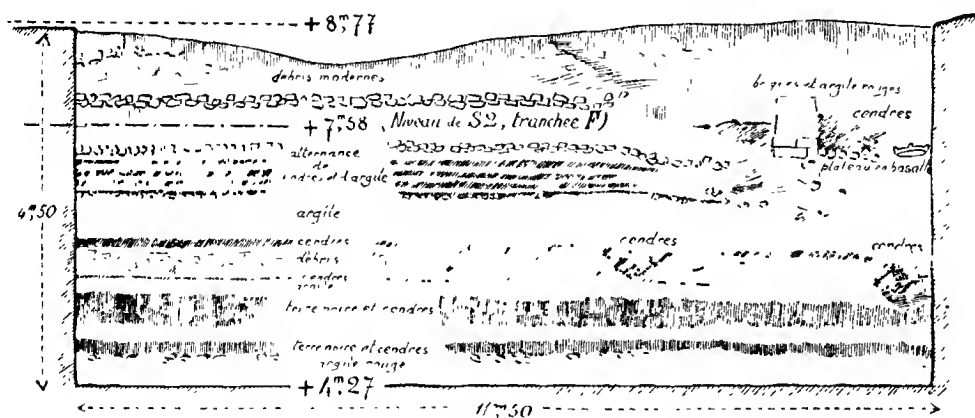 + 8,m77
débris modernes
briques et argile rouges
cendres
+ 7,m58, Niveau de S2, tranchée F)
alternance
de
cendres et d'argile
plateau en basalte
4,m50
argile
cendres
cendres
cendres
débris
cendres
argile
terre noire et cendres
terre noire et cendres
argile rouge
+ 4,m27
11,m50